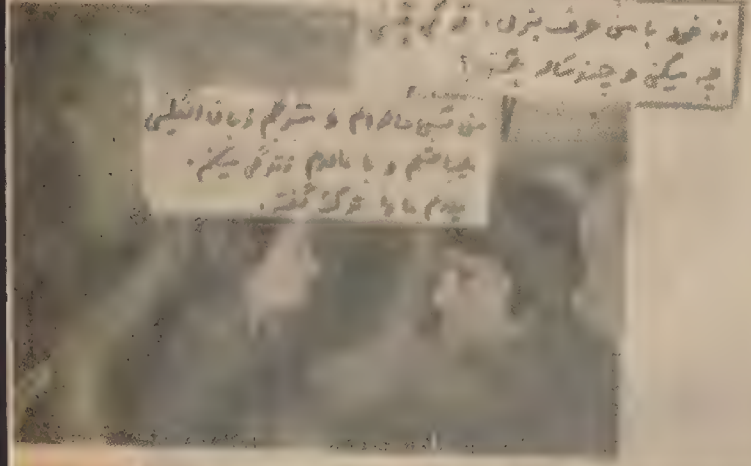 از خود با من حرف بزن، تو کی
چه میکنی و چند ساله
من نسی ماندام و مترجم زبان انگلیسی
میباشم و با مادرم زندگی میکنم.
پدرم ما را ترک گفته.